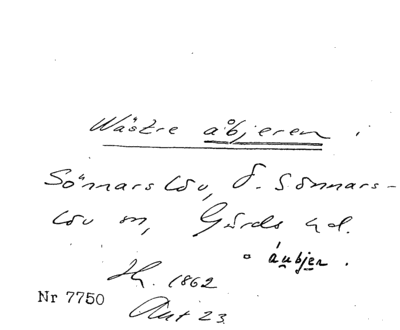 Wästre åbjeren i
Sönnarslöv, Ö. Sönnars-
löv sn, Gärds hd.
åubjen.
1862
Nr 7750
Akt 23.